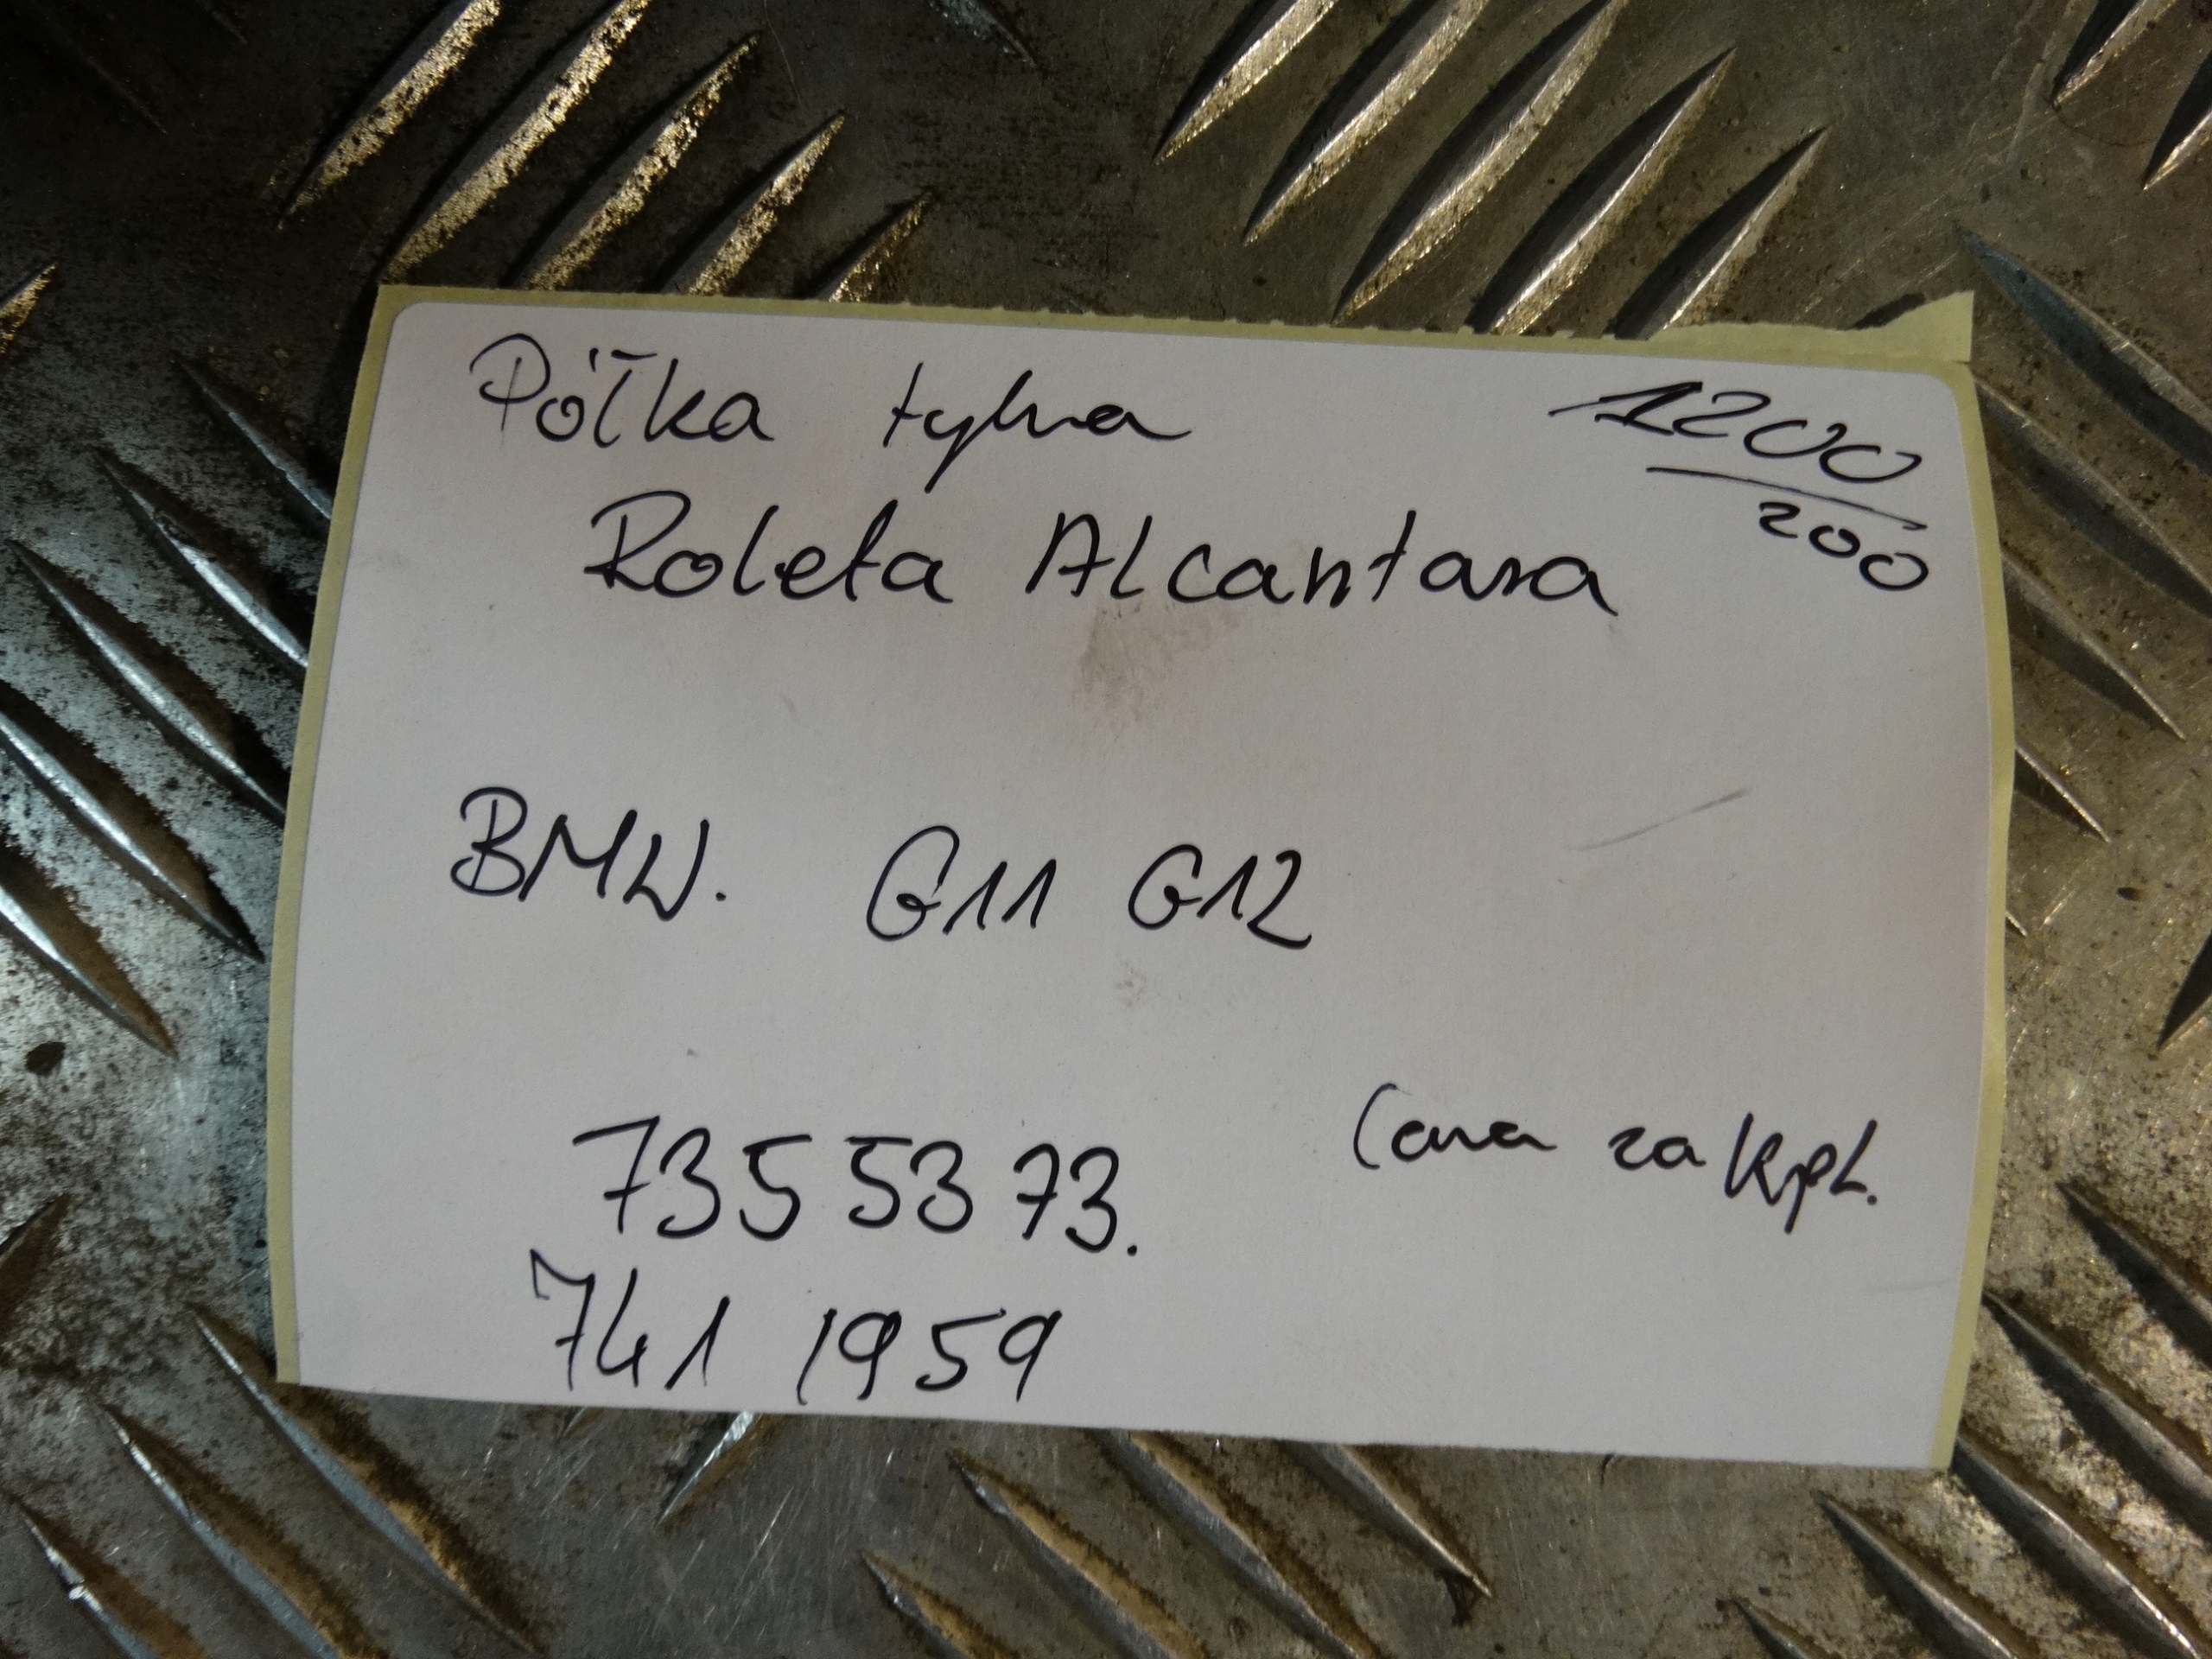 Półka tylna
1200
200
Roleta Alcantara
BMW. G11 G12
7355373.
Cena za kpl.
741 1959